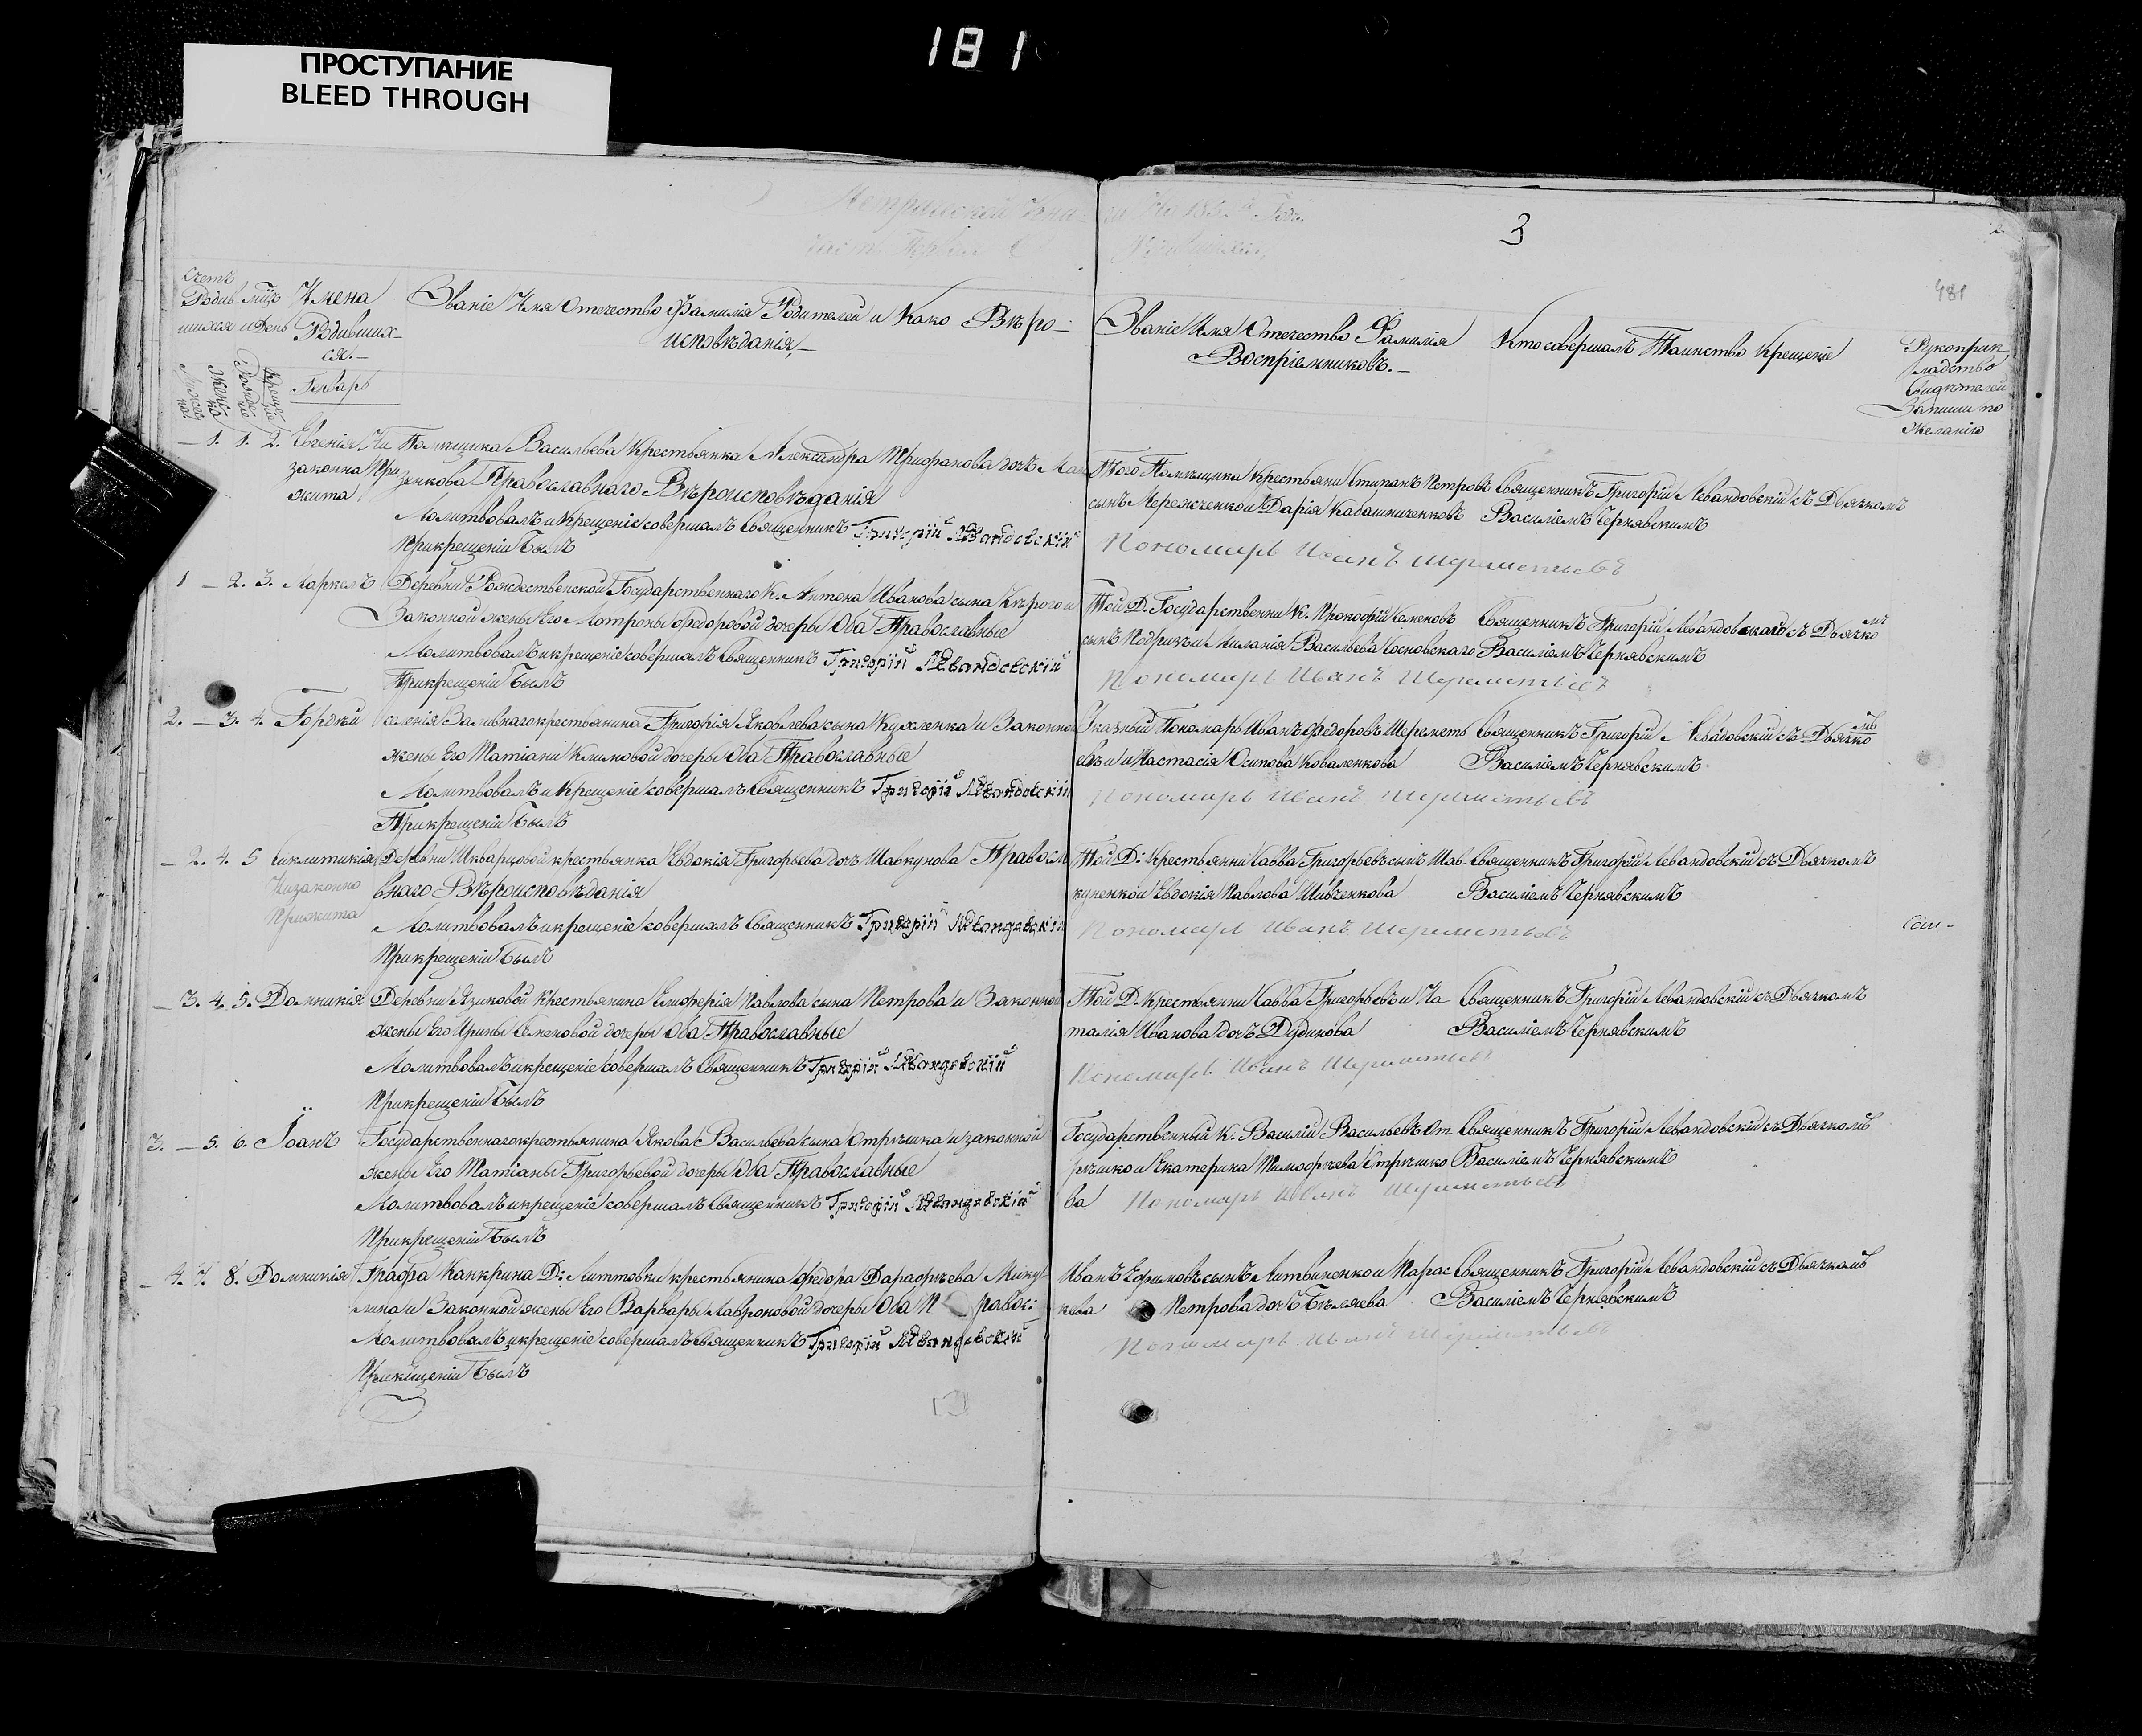 181
ПРОСТУПАНИЕ
BLEED THROUGH
3
481
Счетъ Родив-шихся
мцъ и День
Имена Родивших-ся.-
Званіе Имя Отечество Фамилія Родителей и Како Вѣро-
исповѣданія,-
Званіе Имя Отечество Фамилія
Воспріемниковъ.-
Кто совершалъ Таинство Крещеніе
Рукоприк
ладство
Свидѣтелей
Записи по
Желанію
Генварь
- 1. 1. 2. Евгенія Не
законна При
жита
Помѣщика Васильева Крестьянка Александра Трифонова дочь
Православнаго Вѣроисповѣданія
Молитвовалъ и Крещеніе совершалъ Священникъ Григорій Левандовскій
При крещеніи Былъ
Того Помѣщика Крестьяни Стипанъ Петровъ
сынъ и Дарія
Священникъ Григорій Левандовскій съ Дьячкомъ
Василіемъ Чернявскимъ
Пономарь Иванъ Шереметьевъ
1 - 2. 3. Маркелъ
Деревни Рождественской Государственнаго К. Антона Иванова сына
Законной жены Его Мотроны Федоровой дочеры Оба Православные
Молитвовалъ и крещеніе совершалъ Священникъ Григорій Левандовскій
При крещеніи Былъ
Той Д. Государственни К. Прокофій Семеновъ
сынъ и Миланія Васильева Сосновскаго
Священникъ Григорій Левандовскаго съ Дьячкомъ
Василіемъ Чернявскимъ
Пономарь Иванъ Шереметьевъ
2. - 3. 4. Гордѣй
селенія Заливнаго крестьянина Григорія Яковлева сына и Законной
жены Его Матіани Климовой дочеры Оба Православные
Молитвовалъ и Крещеніе совершалъ Священникъ Григорій Левандовскій
При крещеніи Былъ
Указный Пономарь Иванъ Федоровъ Шереметь
евъ и Настасія Осипова Коваленкова
Священникъ Григорій Левадовскій съ Дьячкомъ
Василіемъ Чернявскимъ
Пономарь Иванъ Шереметьевъ
- 2. 4. 5 Сиклитикія
Незаконно
Прижита
Деревни Шкварцовой крестьянка Евдокія Григорьева дочь Шавкунова Правосла
внаго Вѣроисповѣданія
Молитвовалъ и крещеніе совершалъ Священникъ Григорій Левандовскій
При крещеніи Былъ
Той Д. Крестьянни Савва Григорьевъ сынъ Шав-
куненко и Евдокія Павлова Шивченкова
Священникъ Григорій Левандовскій съ Дьячкомъ
Василіемъ Чернявскимъ
Пономарь Иванъ Шереметьевъ
- 3. 4. 5. Домникія
Деревни Язиковой Крестьянина Елиферія Павлова сына Петрова и Законной
жены Его Ирины Семеновой дочеры Оба Православные
Молитвовалъ и крещеніе совершалъ Священникъ Григорій Левандовскій
При крещеніи Былъ
Той Д. Крестьянни Савва Григорьевъ и На
талія Иванова дочь Дудинова
Священникъ Григорій Левандовскій съ Дьячкомъ
Василіемъ Чернявскимъ
Пономарь Иванъ Шереметьевъ
3. - 5. 6. Іоанъ
Государственнаго крестьянина Якова Васильева сына Отрѣшка и законной
жены Его Матіаны Григорьевой дочеры Оба Православные
Молитвовалъ и крещеніе совершалъ Священникъ Григорій Левандовскій
При крещеніи Былъ
Государственный К. Василій Васильевъ От
рѣшко и Екатерина Тимофѣева Отрѣшко
ва
Священникъ Григорій Левандовскій съ Дьячкомъ
Василіемъ Чернявскимъ
Пономарь Иванъ Шереметьевъ
- 4. 7. 8. Домникія
Графа Канкрина Д. Литтовки крестьянина Федора Дарофѣева Мику
лина и Законной жены Его Варвары Лавроновой дочеры Оба Правос:
Молитвовалъ и крещеніе совершалъ Священникъ Григорій Левандовскій
При крещеніи Былъ
Иванъ Ефимовъ сынъ Литвиненко и Парас
кева Петрова дочь Бѣляева
Священникъ Григорій Левандовскій съ Дьячкомъ
Василіемъ Чернявскимъ
Пономарь Иванъ Шереметьевъ